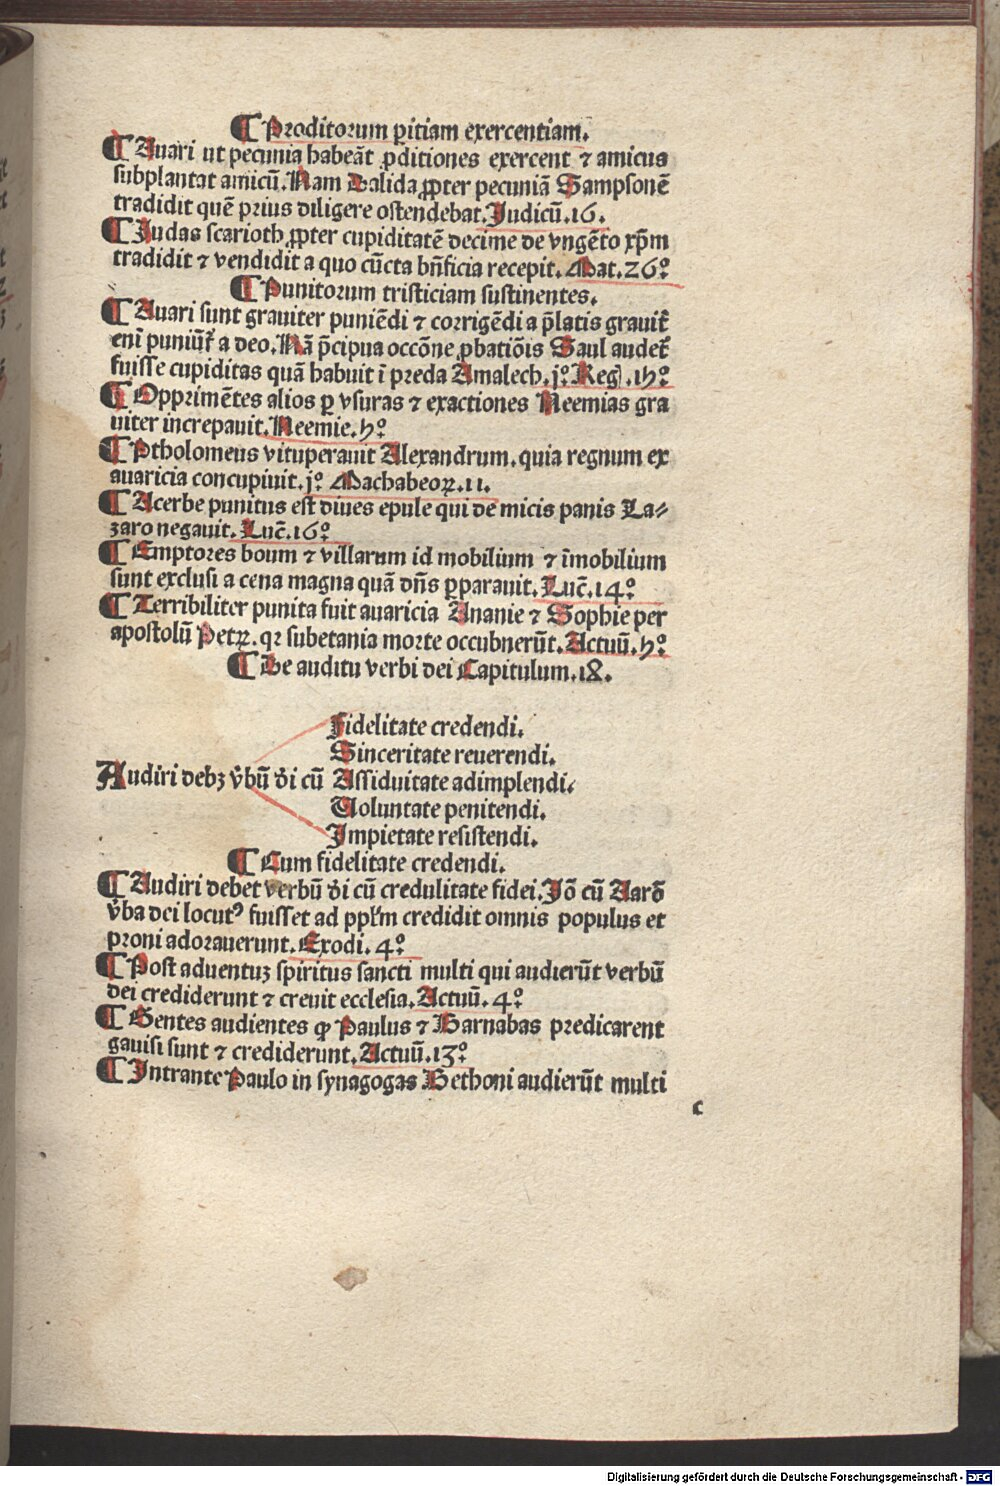 ¶ Proditorum ꝑitiam exercentiam.
¶ Auari ut pecunia habeāt ꝓditiones exercent ⁊ amicus
subplantat amicū. Nam Dalida ꝓpter pecuniā Sampsonē
tradidit quē prius diligere ostendebat. Judicū. 16.
¶ Judas scarioth ꝓpter cupiditatē decime de vngēto xp̄m
tradidit ⁊ vendidit a quo cūcta bn̄ficia recepit. Mat. 26º
¶ Punitorum tristiciam sustinentes.
¶ Auari sunt grauiter puniēdi ⁊ corrigēdi a p̄latis grauit̄
eni puniūt̄ a deo. Nā p̄cipua occōne ꝓbatiōis Saul audet̄
fuisse cupiditas quā habuit ī preda Amalech. jº. Reg. 15º
¶ Opprimētes alios ꝑ vsuras ⁊ exactiones Neemias gra
uiter increpauit. Neemie. 5º
¶ Ptholomeus vituperauit Alexandrum. quia regnum ex
auaricia concupiuit. jº Machabeoꝝ. 11.
¶ Acerbe punitus est diues epule qui de micis panis La⸗
zaro negauit. Luc̄. 16º
¶ Emptores boum ⁊ villarum id mobilium ⁊ īmobilium
sunt exclusi a cena magna quā dn̄s ꝑparauit. Luc̄. 14º
¶ Terribiliter punita fuit auaricia Ananie ⁊ Sophie per
apostolū Petꝝ. qꝛ subetania morte occubuerūt. Actuū. 5º
¶ De auditu verbi dei Capitulum. 18.
Fidelitate credendi.
Sinceritate reuerendi.
Audiri debꝫ v̄bū d̄i cū Assiduitate adimplendi.
Uoluntate penitendi.
Impietate resistendi.
¶ Cum fidelitate credendi.
¶ Audiri debet verbū d̄i cū credulitate fidei. Jō cū Aarō
v̄ba dei locutꝰ fuisset ad ppl̄m credidit omnis populus et
proni adorauerunt. Exodi. 4º
¶ Post aduentuꝫ spiritus sancti multi qui audierūt verbū
dei crediderunt ⁊ creuit ecclesia. Actuū. 4º
¶ Gentes audientes ꝙ Paulus ⁊ Barnabas predicarent
gauisi sunt ⁊ crediderunt. Actuū. 13º
¶ Intrante Paulo in synagogas Bethoni audierūt multi
c
Digitalisierung gefördert durch die Deutsche Forschungsgemeinschaft - DFG